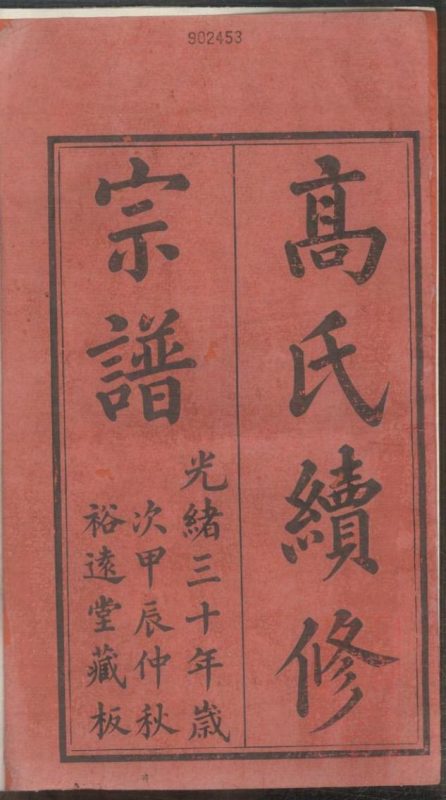 902453
髙氏續修
宗譜
光緒三十年歲
次甲辰仲秋
裕遠堂藏板